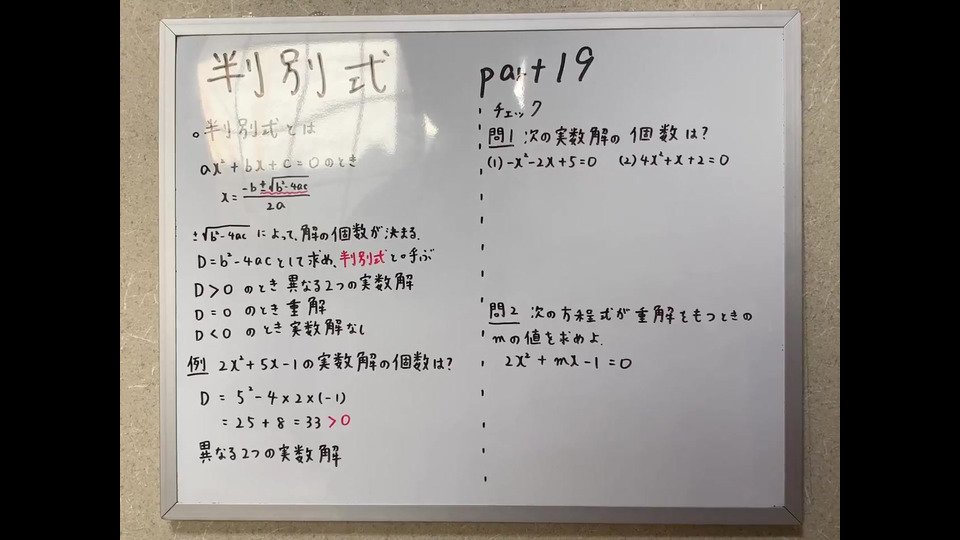 判別式
。判別式とは
ax²+bx+c=0のとき
x=(-b±√(b²-4ac))/2a
±√(b²-4ac) によって、解の個数が決まる.
D=b²-4acとして求め、判別式と呼ぶ
D>0 のとき 異なる2つの実数解
D=0 のとき 重解
D<0 のとき 実数解なし
例 2x²+5x-1の実数解の個数は?
D = 5²-4×2×(-1)
= 25+8=33>0
異なる2つの実数解
part19
チェック
問1 次の実数解の個数は?
(1)-x²-2x+5=0 (2)4x²+x+2=0
問2 次の方程式が重解をもつときの
mの値を求めよ.
2x²+mx-1=0